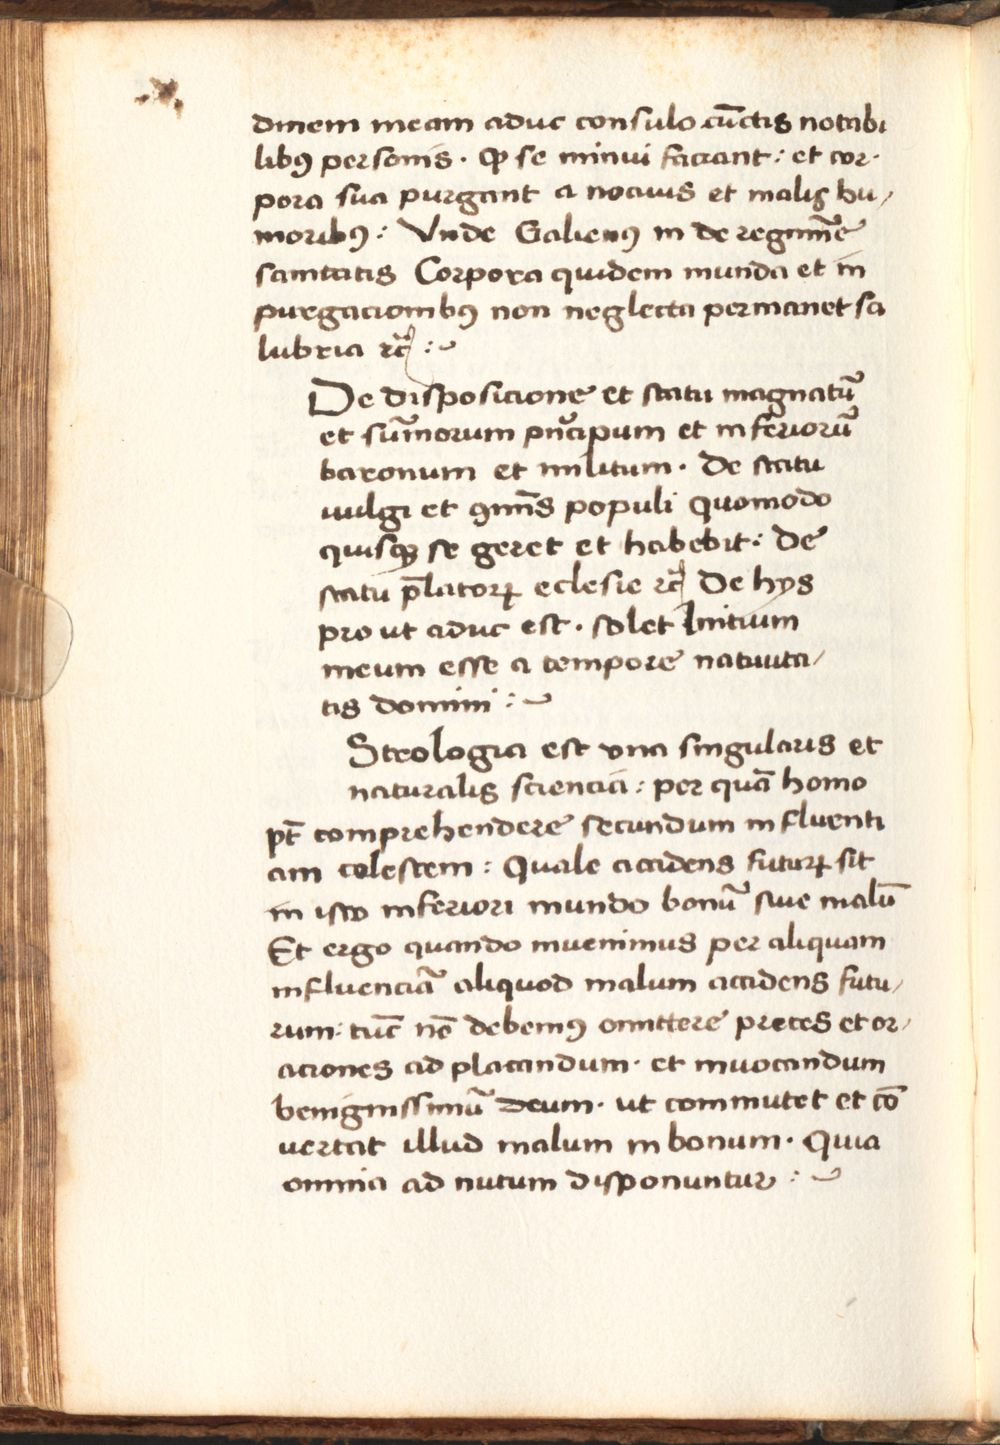 dinem meam aduc consulo cūctis notabi
libꝯ personis · Ꝙ se minui faciant : et cor·
pora sua purgant a nociuis et malis hu/
moribꝯ : Vnde Galienꝯ in de regimīe
sanitatis Corpora quidem munda et in
purgacionibꝯ non neglecta permanet sa
lubria ⁊c̄ :~
De disposicione et statu magnatū
et sūmorum pn̄cipum et inferiorū
baronum et militum · De statu
uulgi et ꝯmīs populi Quomodo
quisqꝫ se geret et habebit : De
statu p̄latoꝝ eclesie ⁊c̄ De hys
pro ut aduc est · solet Initium
meum esse a tempore natiuita/
tis domini :~
Strologia est vna singularis et
naturalis sciencia : per quā homo
pt̄ comprehendere secundum influenti
am celestem : Quale accidens futuꝝ sit
in isto inferiori mundo bonū siue malū
Et ergo quando inuenimus per aliquam
influenciā aliquod malum accidens futu/
rum : tūc nō debemꝯ omittere preces et or/
aciones ad placandum · et inuocandum
benignissimū deum · ut commutet et cō
uertat illud malum in bonum · Quia
omnia ad nutum disponuntur :~